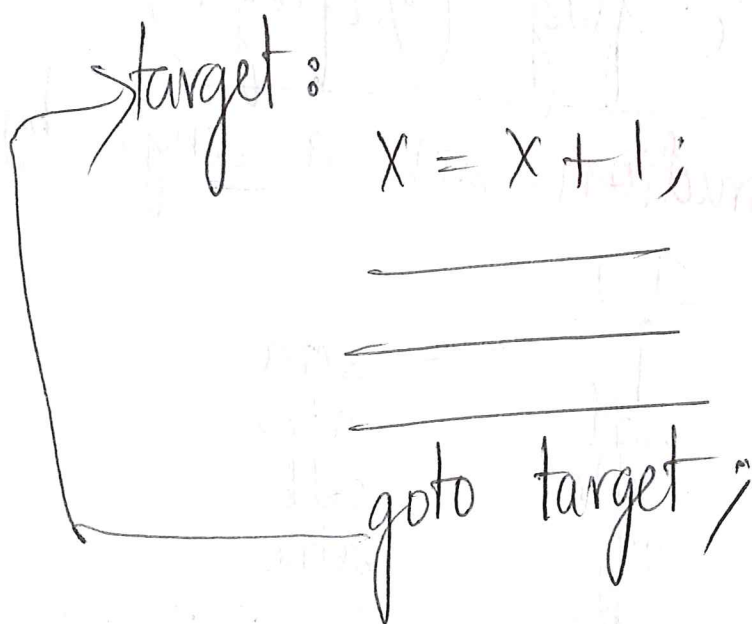 target:
x = x + 1;
goto target;